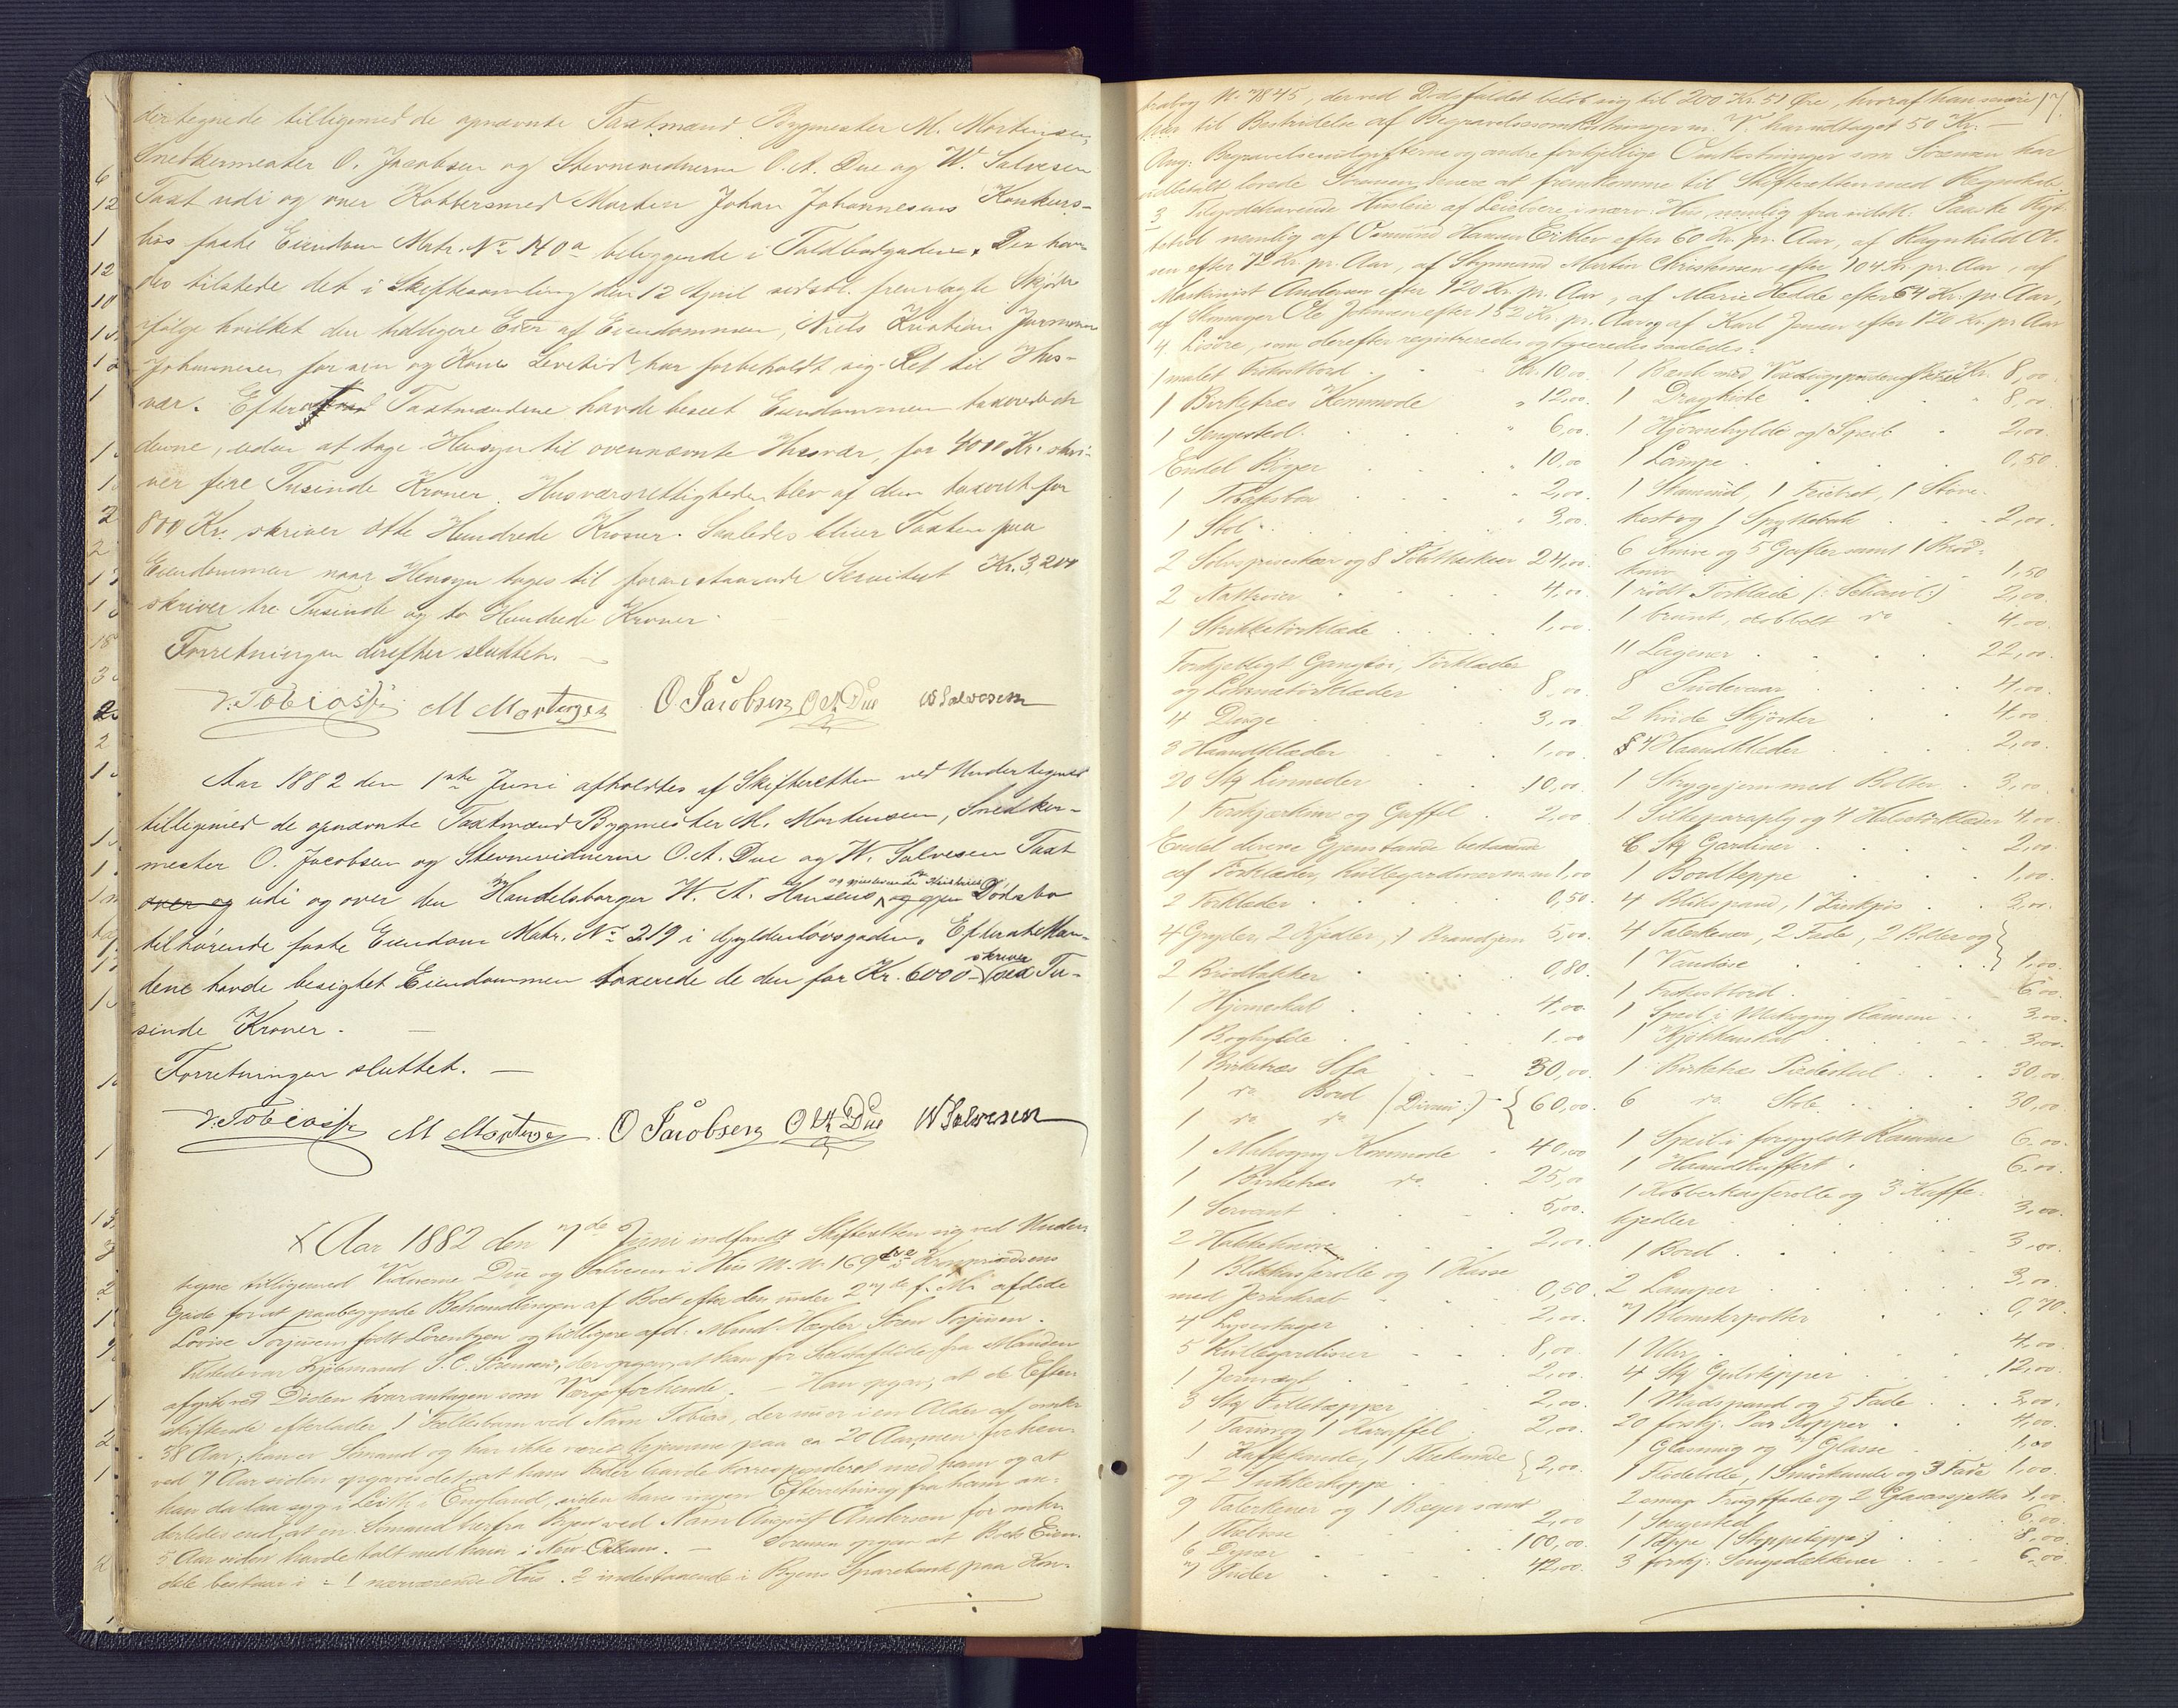 dertegnede tilligemed de opnævnte Taxtmænd Bygmester M. Mortensen,
Snedkermester O. Jacobsen og Stevnevidnerne O. A. Due og W. Salvesen
Taxt udi og over Kobbersmed Morten Johan Johannesens Konkurs-
bos faste Eiendom Matr. No 140a beliggende i Toldbodgaden. Der hav-
des tilstede det i Skiftesamling den 12 April sidstl. fremlagte Skjøde
ifølge hvilket den tidligere Eier af Eiendommen, Niels Kristian
Johannesen for sin og Kones Levetid har forbeholdt sig Ret til Hus-
vær. Efterat Taxtmændene havde beseet Eiendommen taxerede de
denne, uden at tage Hensyn til ovennævnte Husvær, for 4000 Kr. skri-
ver fire Tusinde Kroner. Husværsrettigheden blev af dem taxeret for
800 Kr. skriver otte Hundrede Kroner. Saaledes bliver Taxten paa
Eiendommen naar Hensyn tages til foranstaaende Servitut Kr. 3,200
skriver tre Tusinde og to Hundrede Kroner.
Forretningen derefter sluttet.
M Mortensen O. Jacobsen O A Due W Salvesen
Aar 1882 den 1ste Juni afholdtes af Skifteretten ved Undertegnede
tilligemed de opnævnte Taxtmænd Bygmester M. Mortensen, Snedker-
mester O. Jacobsen og Stevnevidnerne O. A. Due og W. Salvesen Taxt
over og udi og over den Handelsborger W. A. Hansens og gjenlevende Hustrues Dødsbo
tilhørende faste Eiendom Matr. No 219 i Gyldenløvsgaden. Efterat Mæn-
dene havde besigtet Eiendommen taxerede de den for Kr. 6000 skriver sex Tu-
sinde Kroner.
Forretningen sluttet.
M Mortensen O Jacobsen O A Due W Salvesen
Aar 1882 den 7de Juni indfandt Skifteretten sig ved Under-
tegnede tilligemed Vidnerne Due og Salvesen i Hus M. No. 169 Kronprindsens
Gade for at paabegynde Behandlingen af Boet efter den under 27de f. M. afdøde
Lovise Torjusen født Lorentzen og tidligere afd. Mand Hægler Søren Torjusen.
Tilstede var Kjøbmand S. C. Sørensen, der opgav, at han for Skifteafdøde, fra Manden
afgik ved Døden har antagen som Værge for hende. Han opgav, at de Efter-
skiftende efterlader 1 Fællesbarn ved Navn Tobias, der nu er i en Alder af omkr.
38 Aar; han er Sømand og har ikke været hjemme paa ca 20 Aar, men for hen-
ved 7 Aar siden opgaves det, at hans Fader havde korresponderet med ham og at
han da laa syg i Leith i England, siden haves ingen Efterretning fra ham an-
derledes end, at en Sømand herfra Byen ved Navn August Andersen for omkr.
5 Aar siden havde talt med ham i New Orleans. Sørensen opgav at Boets Eien-
dele bestaar i: 1 nærværende Hus. 2 indestaaende i Byens Sparebank paa Kon-
17.
trabog N. 7845, der ved Dødsfaldet beløb sig til 200 Kr. 51 Øre, hvoraf han
har til Bestridelse af Begravelsesomkostninger m. V. har udtaget 50 Kr.
Ang. Begravelsesudgifterne og andre forskjellige Omkostninger som Sørensen har
udbetalt lovede Sørensen senere at fremkomme til Skifteretten med Regnskab.
3 Tilgodehavende Husleie af Leieboere i nærv. Hus, nemlig fra sidstl. Paaske Flyt-
tetid nemlig af Osmund Hansen Eiklev efter 60 Kr. pr. Aar, af Ragnhild Ol-
sen efter 72 Kr. pr. Aar, af Styrmand Martin Christensen efter 104 Kr. pr. Aar, af
Maskinist Andersen efter 120 Kr. pr. Aar, af Marie Hedde efter 64 Kr. pr. Aar,
af Skomager Ole Johnsen efter 152 Kr. pr. Aar og af Karl Jensen efter 120 Kr. pr. Aar
4 Løsøre, som derefter registreredes og taxeredes saaledes:
1 malet Frokostbord . . Kr. 10,00
1 Birketræs Kommode „ 12,00
1 Sengested . . „ 6,00
Endel Bøger „ 10,00
1 2,00
1 Stol . . 3,00
2 Sølvspiseskeer og 8 Sølvtheskeer 24,00
2 Nattrøier 4,00
1 Strikketørklæde 1,00
Forskjelligt Gangtøi, Tørklæder
og Lommetørklæder 8,00
4 Duge 3,00
3 Haandklæder 1,00
20 Stk Linneder 10,00
1 Forskjærkniv og Gaffel 2,00
Endel diverse Gjenstande bestaaende
af Forklæder, Rullegardiner m.m 1,00
2 Forklæder 0,50
4 Gryder, 2 Kjedler, 1 Brandjern 5,00
2 Brødbakker 0,80
1 Hjørneskab 4,00
1 Boghylde 1,00
1 Birketræs Sofa 30,00
1 do Bord
1 do do 60,00
1 Mahogny Kommode 40,00
1 Birketræs do 25,00
1 Servant 5,00
2 Hakkeknive 2,00
1 Blikkasserolle og 1 Kasse
med Jernskrab 0,50
4 Lysestager 2,00
5 Rullegardiner 8,00
1 Jernvægt 2,00
3 Stk Filletæpper 2,00
1 Terrin og 1 Karaffel 2,00
1 Kaffekande, 1 Thekande
og 2 Sukkerkoppe 2,00
9 Talerkener og 1 Bæger samt
1 2,00
6 Dyner 100,00
7 Puder 42,00
1 Bænk med Kr. 8,00
1 Dragkiste 8,00
1 Hjørnehylde og 1 Speil 2,00
1 Lampe 0,50
1 1 Feiebret, 1 Støve-
kost og 1 Spyttebak 2,00
6 Knive og 5 Gafler samt 1 Brød-
kniv 1,50
1 rødt Tørklæde (: Schawl :) 2,00
1 brunt, dobbelt do 4,00
11 Lagener 22,00
8 Pudevaar 4,00
2 hvide Skjørter 4,00
4 Haandklæder 2,00
1 Strygejern med Bolter 3,00
1 Silkeparaply og 4 Halstørklæder 4,00
6 Stk Gardiner 2,00
1 Bordteppe 1,00
4 Blikspand, 1 2,00
4 Talerkener, 2 Fade, 2 Boller og
1 Vandøse 1,00
1 Frokostbord 6,00
1 Speil i Mahogny Ramme 3,00
1 Kjøkkenskab 3,00
1 Birketræs Pidestal 30,00
6 do Stole 30,00
1 Speil i forgyldt Ramme 6,00
1 Haandkuffert 6,00
1 Kobberkasserolle og 3 Kaffe-
kjedler 3,00
1 Bord 3,00
2 Lamper 3,00
7 Blomsterpotter 0,70
1 Uhr 4,00
4 Stk Gulvtepper 12,00
1 Madspand og 5 Fade 3,00
20 forskj. Par Kopper 4,00
1 Glasmug og 7 Glasse 1,00
1 Flødebolle, 1 Smørkande og 3 Fade 1,00
2 smaa Frugtfade og 2 Glasasjetter 1,00
1 Sengested 6,00
1 Tæppe (: Stoppeteppe :) 8,00
3 forskj. Sengedækkener 6,00